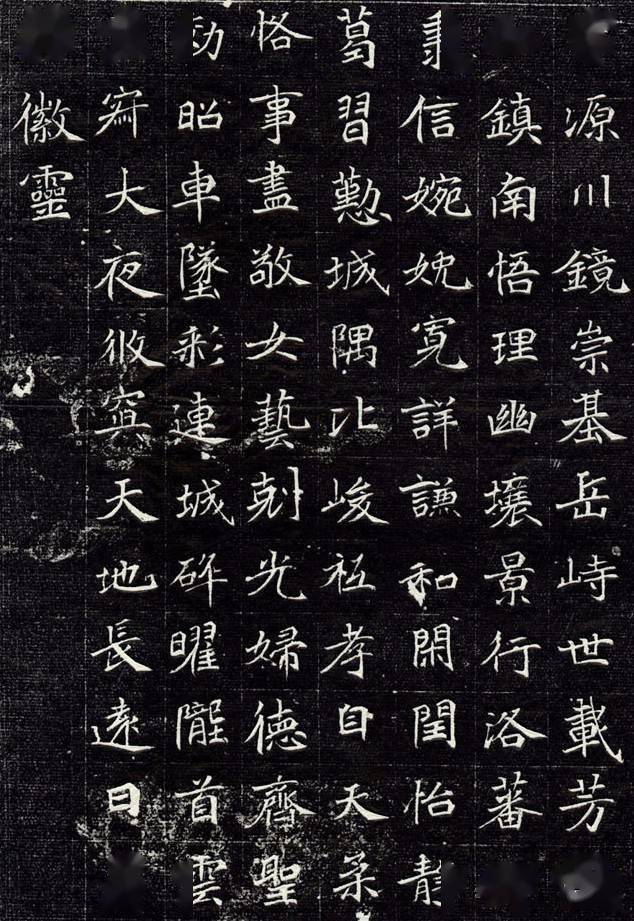 源川鏡崇基岳峙世載芳
鎮南悟理幽壤景行洛蕃
信婉娩寬詳謙和閑閨怡靜
葛習懃城隅比峻孝自天柔
恪事盡敬女藝剋光婦德齊聖
昭車墜彩連城碎曜隴首雲
大夜攸冥天地長遠日
徽靈